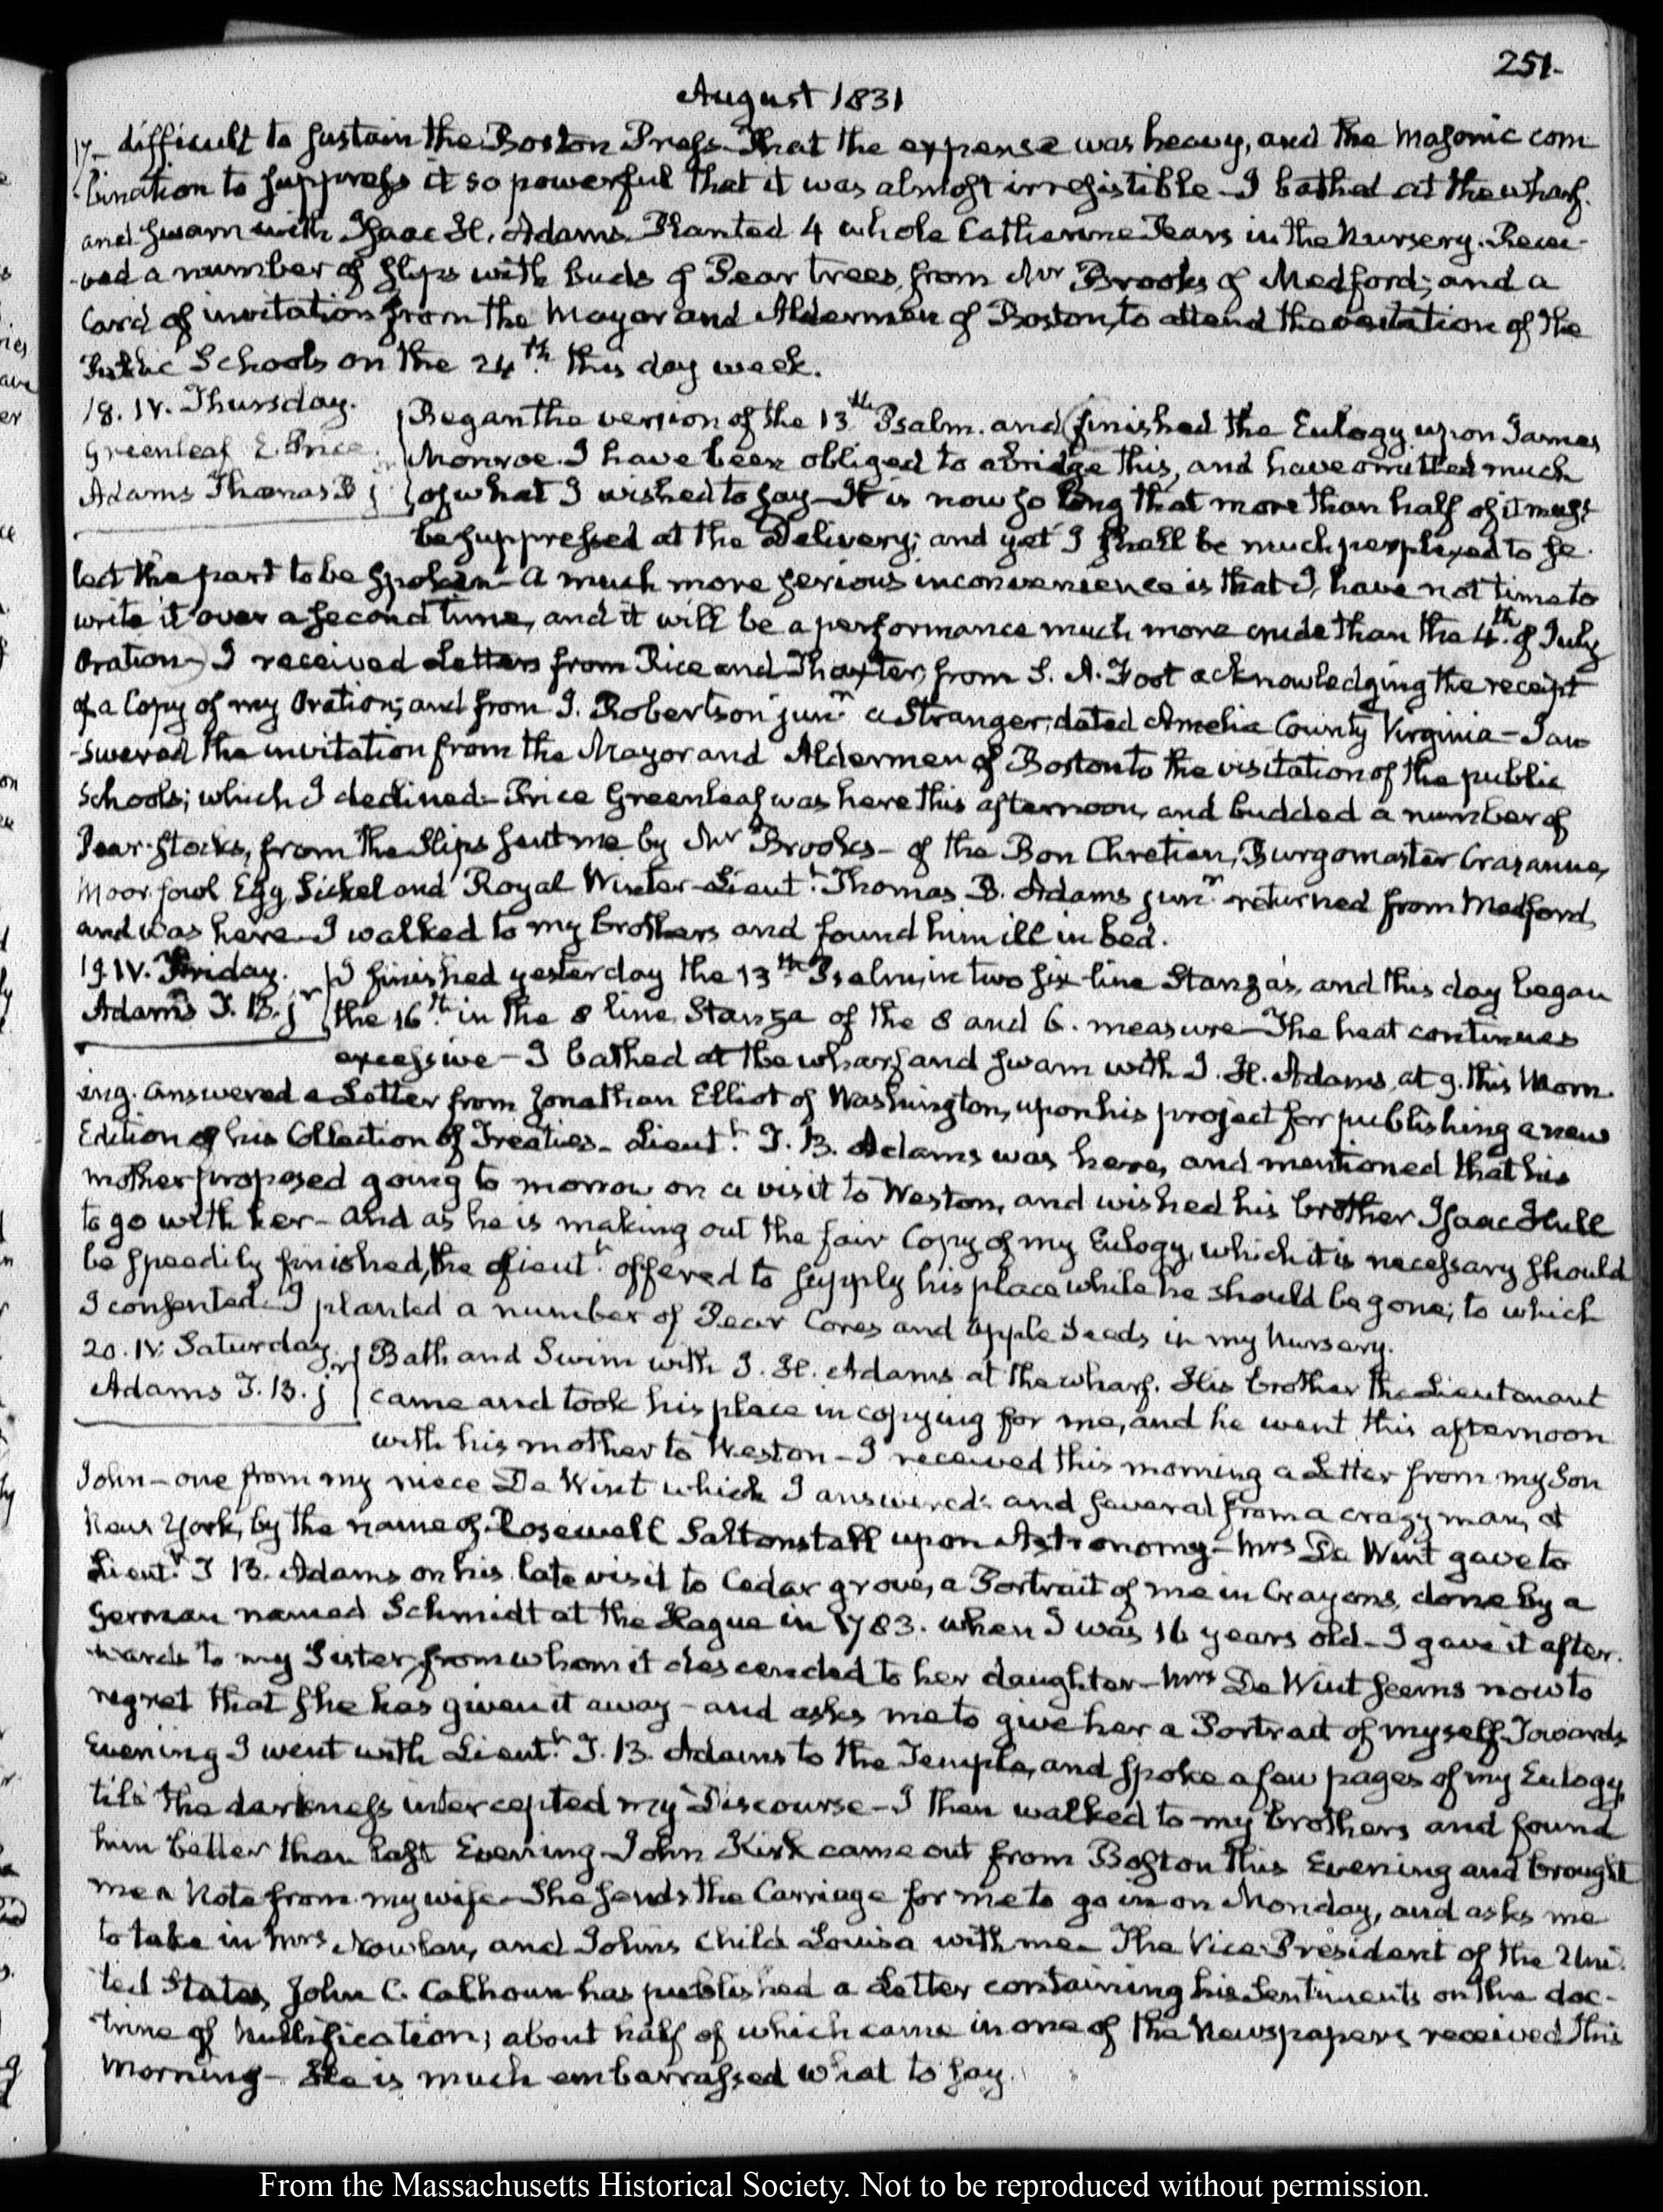 251.
August 1831
17— difficult to sustain the Boston Press— That the expense was heavy, and the Masonic com
-bination to suppress it so powerful that it was almost irresistible— I bathed at the wharf.
and swam with Isaac H. Adams. Planted 4 whole Catherine Pears in the Nursery. Recei-
-ved a number of slips with buds of Pear trees, from Mr Brooks of Medford; and a
Card of invitation from the Mayor and Aldermen of Boston, to attend the visitation of the
Public Schools on the 24th. this day week.
18. IV. Thursday.
Greenleaf E. Price
Adams Thomas B jr
Began the version of the 13th Psalm. and (finished the Eulogy upon James
Monroe. I have been obliged to abridge this, and have omitted much
of what I wished to say— It is now so long that more than half of it must
be suppressed at the Delivery; and yet I shall be much perplexed to se-
lect the part to be spoken— A much more serious inconvenience is that I have not time to
write it over a second time, and it will be a performance much more crude than the 4th. of July
Oration—) I received Letters from Rice and Thaxter, from S. A. Foot acknowledging the receipt
of a Copy of my Oration; and from J. Robertson junr a Stranger, dated Amelia County Virginia— I an
-swered the invitation from the Mayor and Aldermen of Boston to the visitation of the public
Schools; which I declined— Price Greenleaf was here this afternoon, and budded a number of
Pear-stocks, from the slips sent me by Mr Brooks— of the Bon Chretien, Burgomaster Crasanne,
Moor fowl Egg, Sickel and Royal Winter— Lieutt. Thomas B. Adams junr. returned from Medford,
and was here— I walked to my brothers and found him ill in bed.
19. IV. Friday.
Adams T. B. jr
I finished yesterday the 13th Psalm, in two six line Stanza's, and this day began
the 16th. in the 8 line Stanza of the 8 and 6. measure— The heat continues
excessive— I bathed at the wharf and swam with I. H. Adams at 9. this Morn-
ing. answered a Letter from Jonathan Elliot of Washington, upon his project for publishing a new
Edition of his Collection of Treaties— Lieutt. T. B. Adams was here, and mentioned that his
mother proposed going to morrow on a visit to Weston, and wished his brother Isaac Hull
to go with her— and as he is making out the fair Copy of my Eulogy, which it is necessary should
be speedily finished, the Lieutt. offered to supply his place while he should be gone; to which
I consented. I planted a number of Pear Cores and apple seeds in my Nursery.
20. IV. Saturday.
Adams T. B. jr
Bath and Swim with I. H. Adams at the wharf. His brother the Lieutenant
came and took his place in copying for me, and he went this afternoon
with his mother to Weston— I received this morning a Letter from my Son
John— one from my niece De Wint which I answered: and several from a crazy man, at
New York, by the name of Rosewell Saltonstall upon Astronomy— Mrs De Wint gave to
Lieutt. T B. Adams on his late visit to Cedar grove, a Portrait of me in Crayons, done by a
German named Schmidt at the Hague in 1783. when I was 16 years old— I gave it after-
wards to my Sister, from whom it descended to her daughter— Mrs De Wint seems now to
regret that she has given it away— and asks me to give her a Portrait of myself. Towards
Evening I went with Lieutt. T. B. Adams to the Temple, and spoke a few pages of my Eulogy,
till the darkness intercepted my Discourse— I then walked to my brothers and found
him better than last Evening. John Kirk came out from Boston this Evening and brought
me a Note from my wife— She sends the Carriage for me to go in on Monday, and asks me
to take in Mrs Nowlan, and Johns child Louisa with me— The Vice-President of the Uni-
ted States, John C. Calhoun has published a Letter containing his Sentiments on the doc-
trine of Nullification; about half of which came in one of the Newspapers received this
Morning— He is much embarrassed what to say.
From the Massachusetts Historical Society. Not to be reproduced without permission.